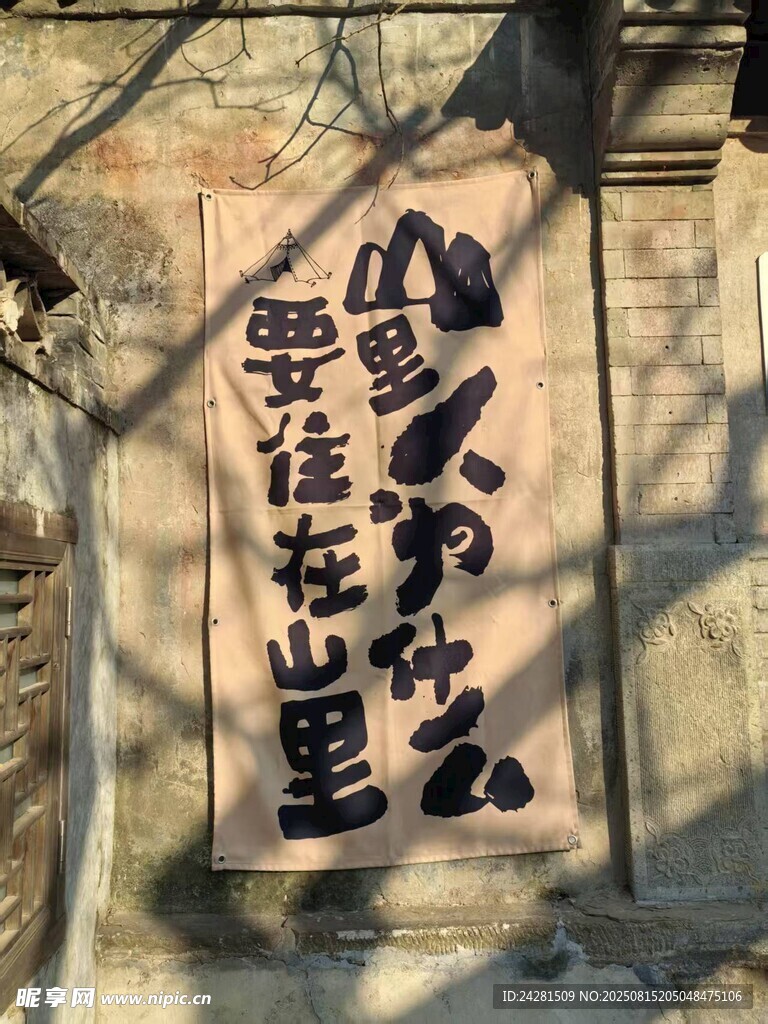 山里人为什么
要住在山里
昵享网 www.nipic.cn
ID:24281509 NO:20250815205048475106